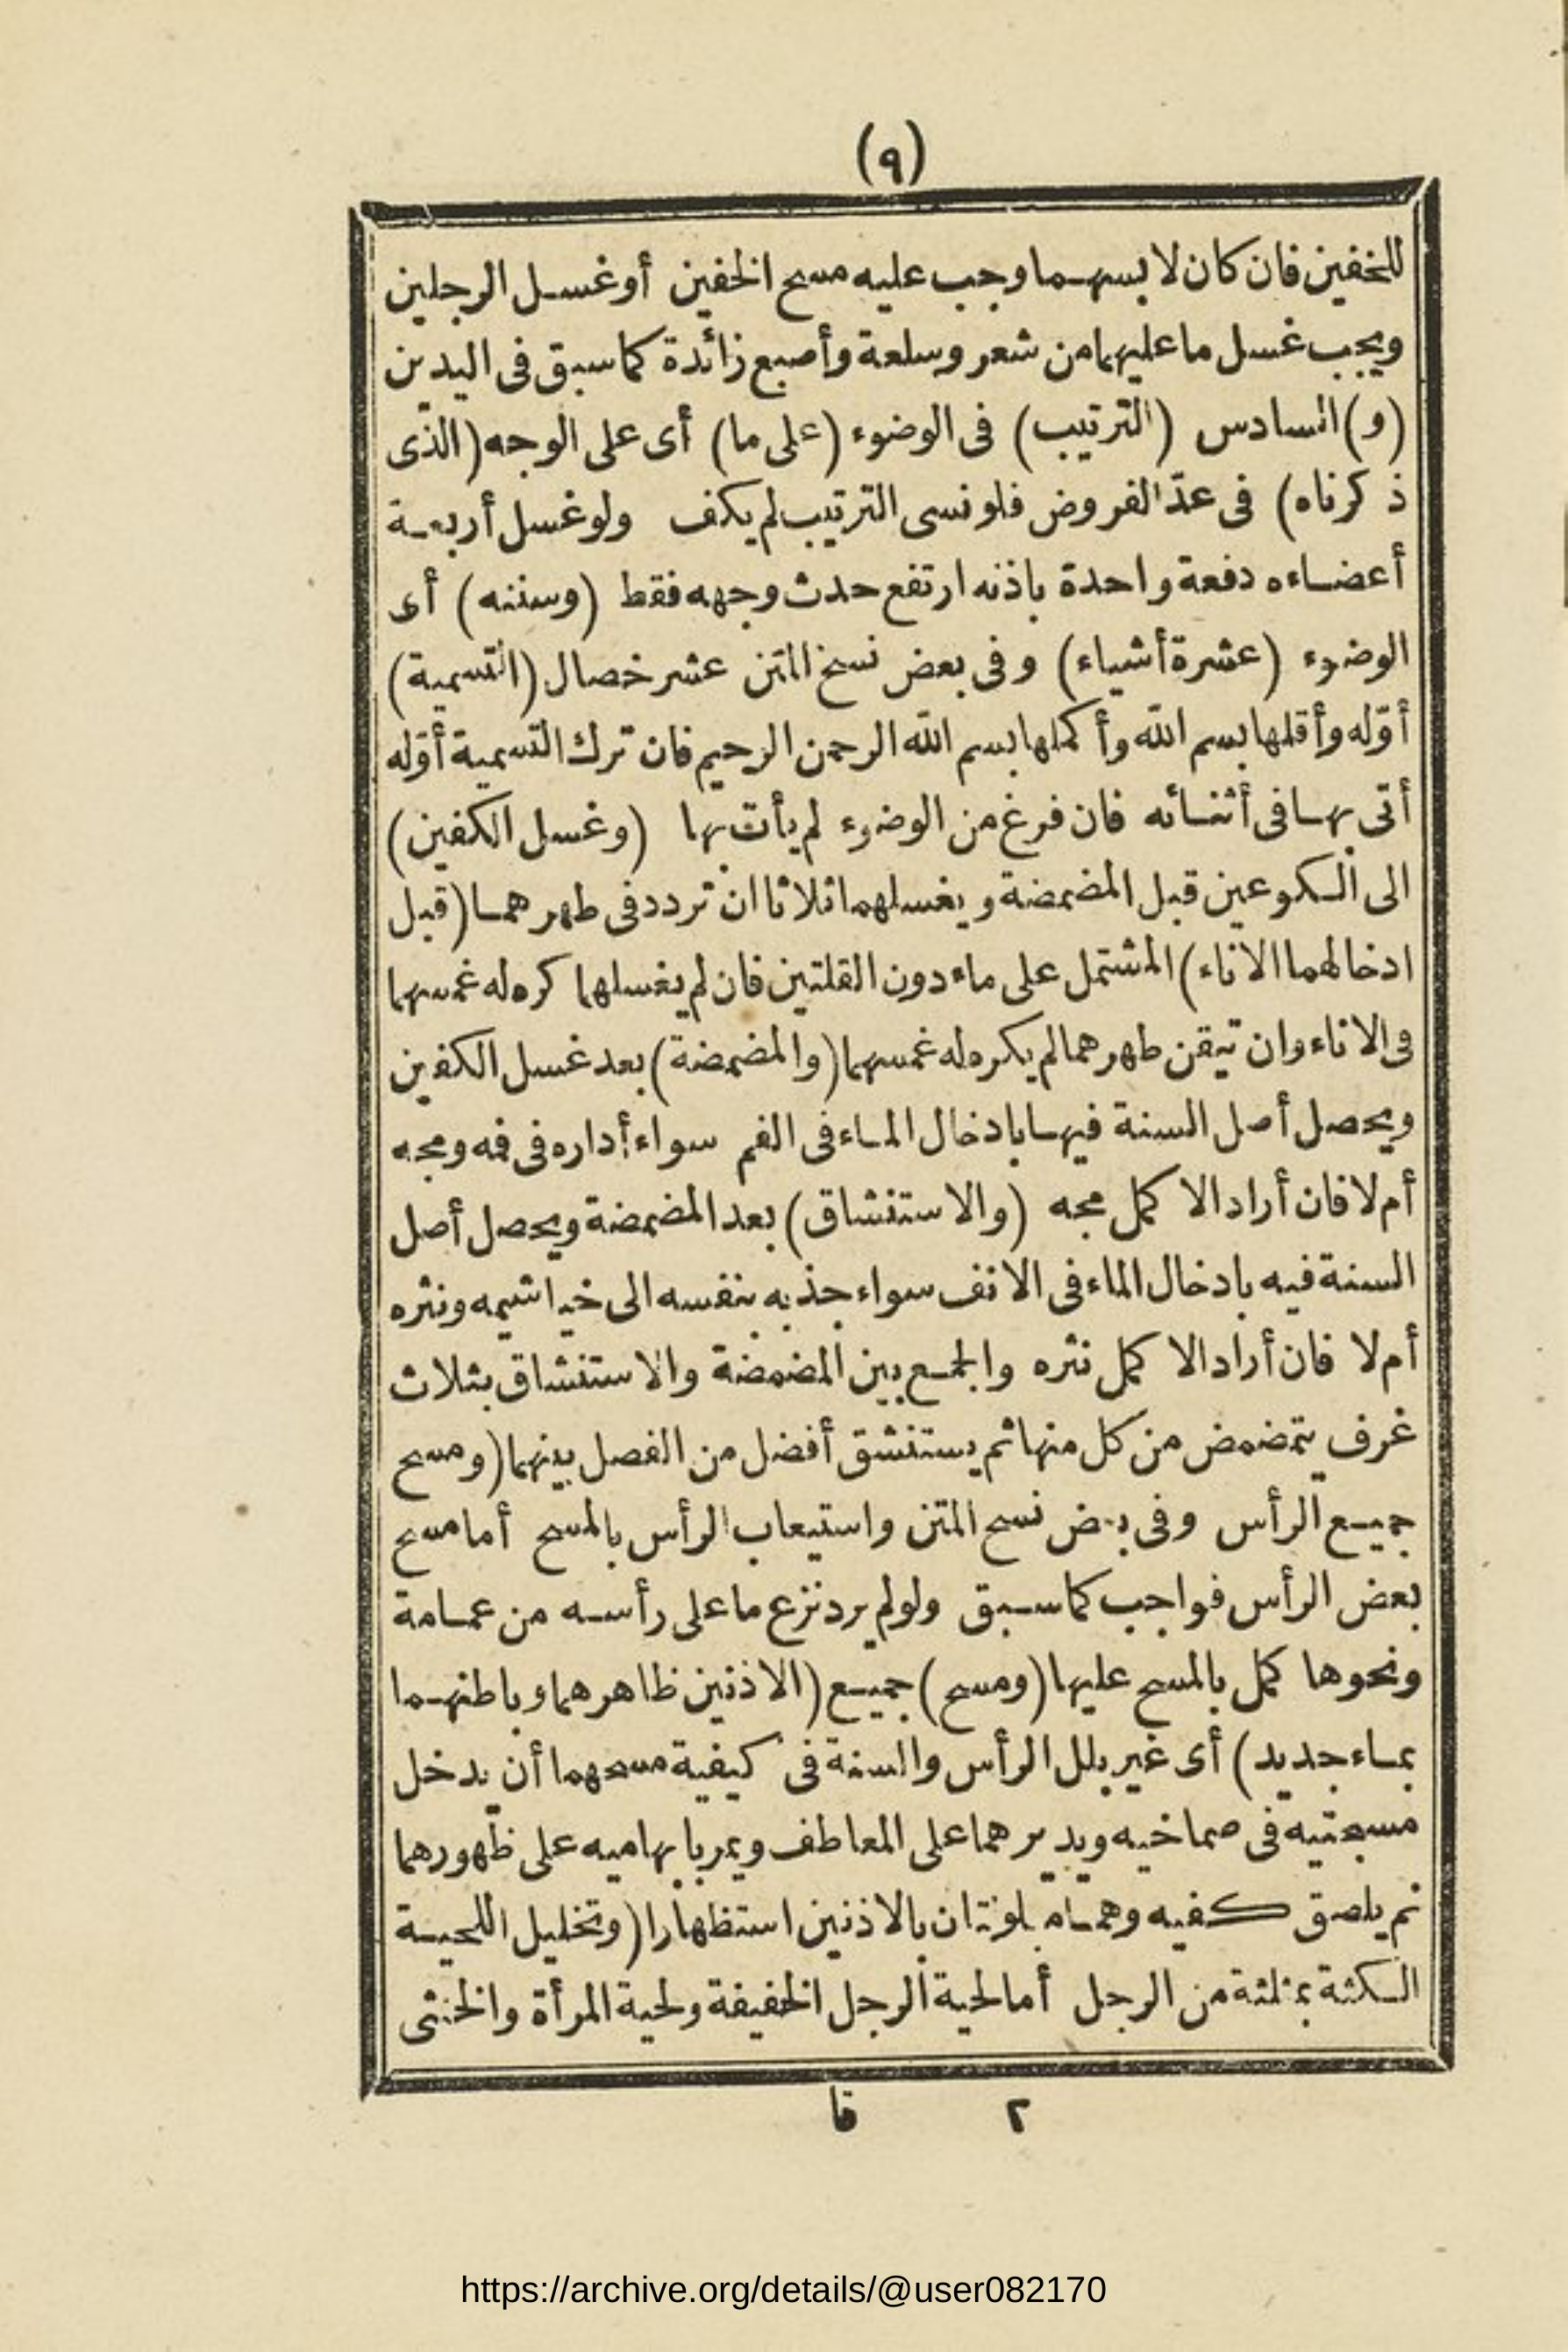 (٩)
للخفين فان كان لابسهما وجب عليه مسح الخفين أو غسل الرجلين
ويجب غسل ما عليهما من شعر وسلعة وأصبع زائدة كما سبق فى اليدين
(و) السادس (الترتيب) فى الوضوء (على ما) أى على الوجه (الذى
ذكرناه) فى عدّ الفروض فلو نسى الترتيب لم يكف ولو غسل أربعة
أعضاءه دفعة واحدة باذنه ارتفع حدث وجهه فقط (وسننه) أى
الوضوء (عشرة أشياء) وفى بعض نسخ المتن عشر خصال (التسمية)
أوّله وأقلها بسم الله وأكملها بسم الله الرحمن الرحيم فان ترك التسمية أوّله
أتى بها فى أثنائه فان فرغ من الوضوء لم يأت بها (وغسل الكفين)
الى الكوعين قبل المضمضة ويغسلهما ثلاثا ان تردد فى طهرهما (قبل
ادخالهما الاناء) المشتمل على ماء دون القلتين فان لم يغسلهما كره له غمسهما
فى الاناء وان تيقن طهرهما لم يكره له غمسهما (والمضمضة) بعد غسل الكفين
ويحصل أصل السنة فيها بادخال الماء فى الفم سواء أداره فى فمه ومجه
أم لا فان أراد الا كمل مجه (والاستنشاق) بعد المضمضة ويحصل أصل
السنة فيه بادخال الماء فى الانف سواء جذبه بنفسه الى خياشيمه ونثره
أم لا فان أراد الا كمل نثره والجمع بين المضمضة والاستنشاق بثلاث
غرف يتمضمض من كل منها ثم يستنشق أفضل من الفصل بينهما (ومسح
جميع الرأس وفى بعض نسخ المتن واستيعاب الرأس بالمسح أما مسح
بعض الرأس فواجب كما سبق ولو لم يرد نزع ما على رأسه من عمامة
ونحوها كمل بالمسح عليها (ومسح) جميع (الاذنين ظاهرهما وباطنهما
بماء جديد) أى غير بلل الرأس والسنة فى كيفية مسحهما أن يدخل
مسبحتيه فى صماخيه ويديرهما على المعاطف ويمر بابهاميه على ظهورهما
ثم يلصق كفيه وهما مبلولتان بالاذنين استظهارا (وتخليل اللحية
الكثة بمثلثة من الرجل أما لحية الرجل الخفيفة ولحية المرأة والخنثى
٢ قا
https://archive.org/details/@user082170